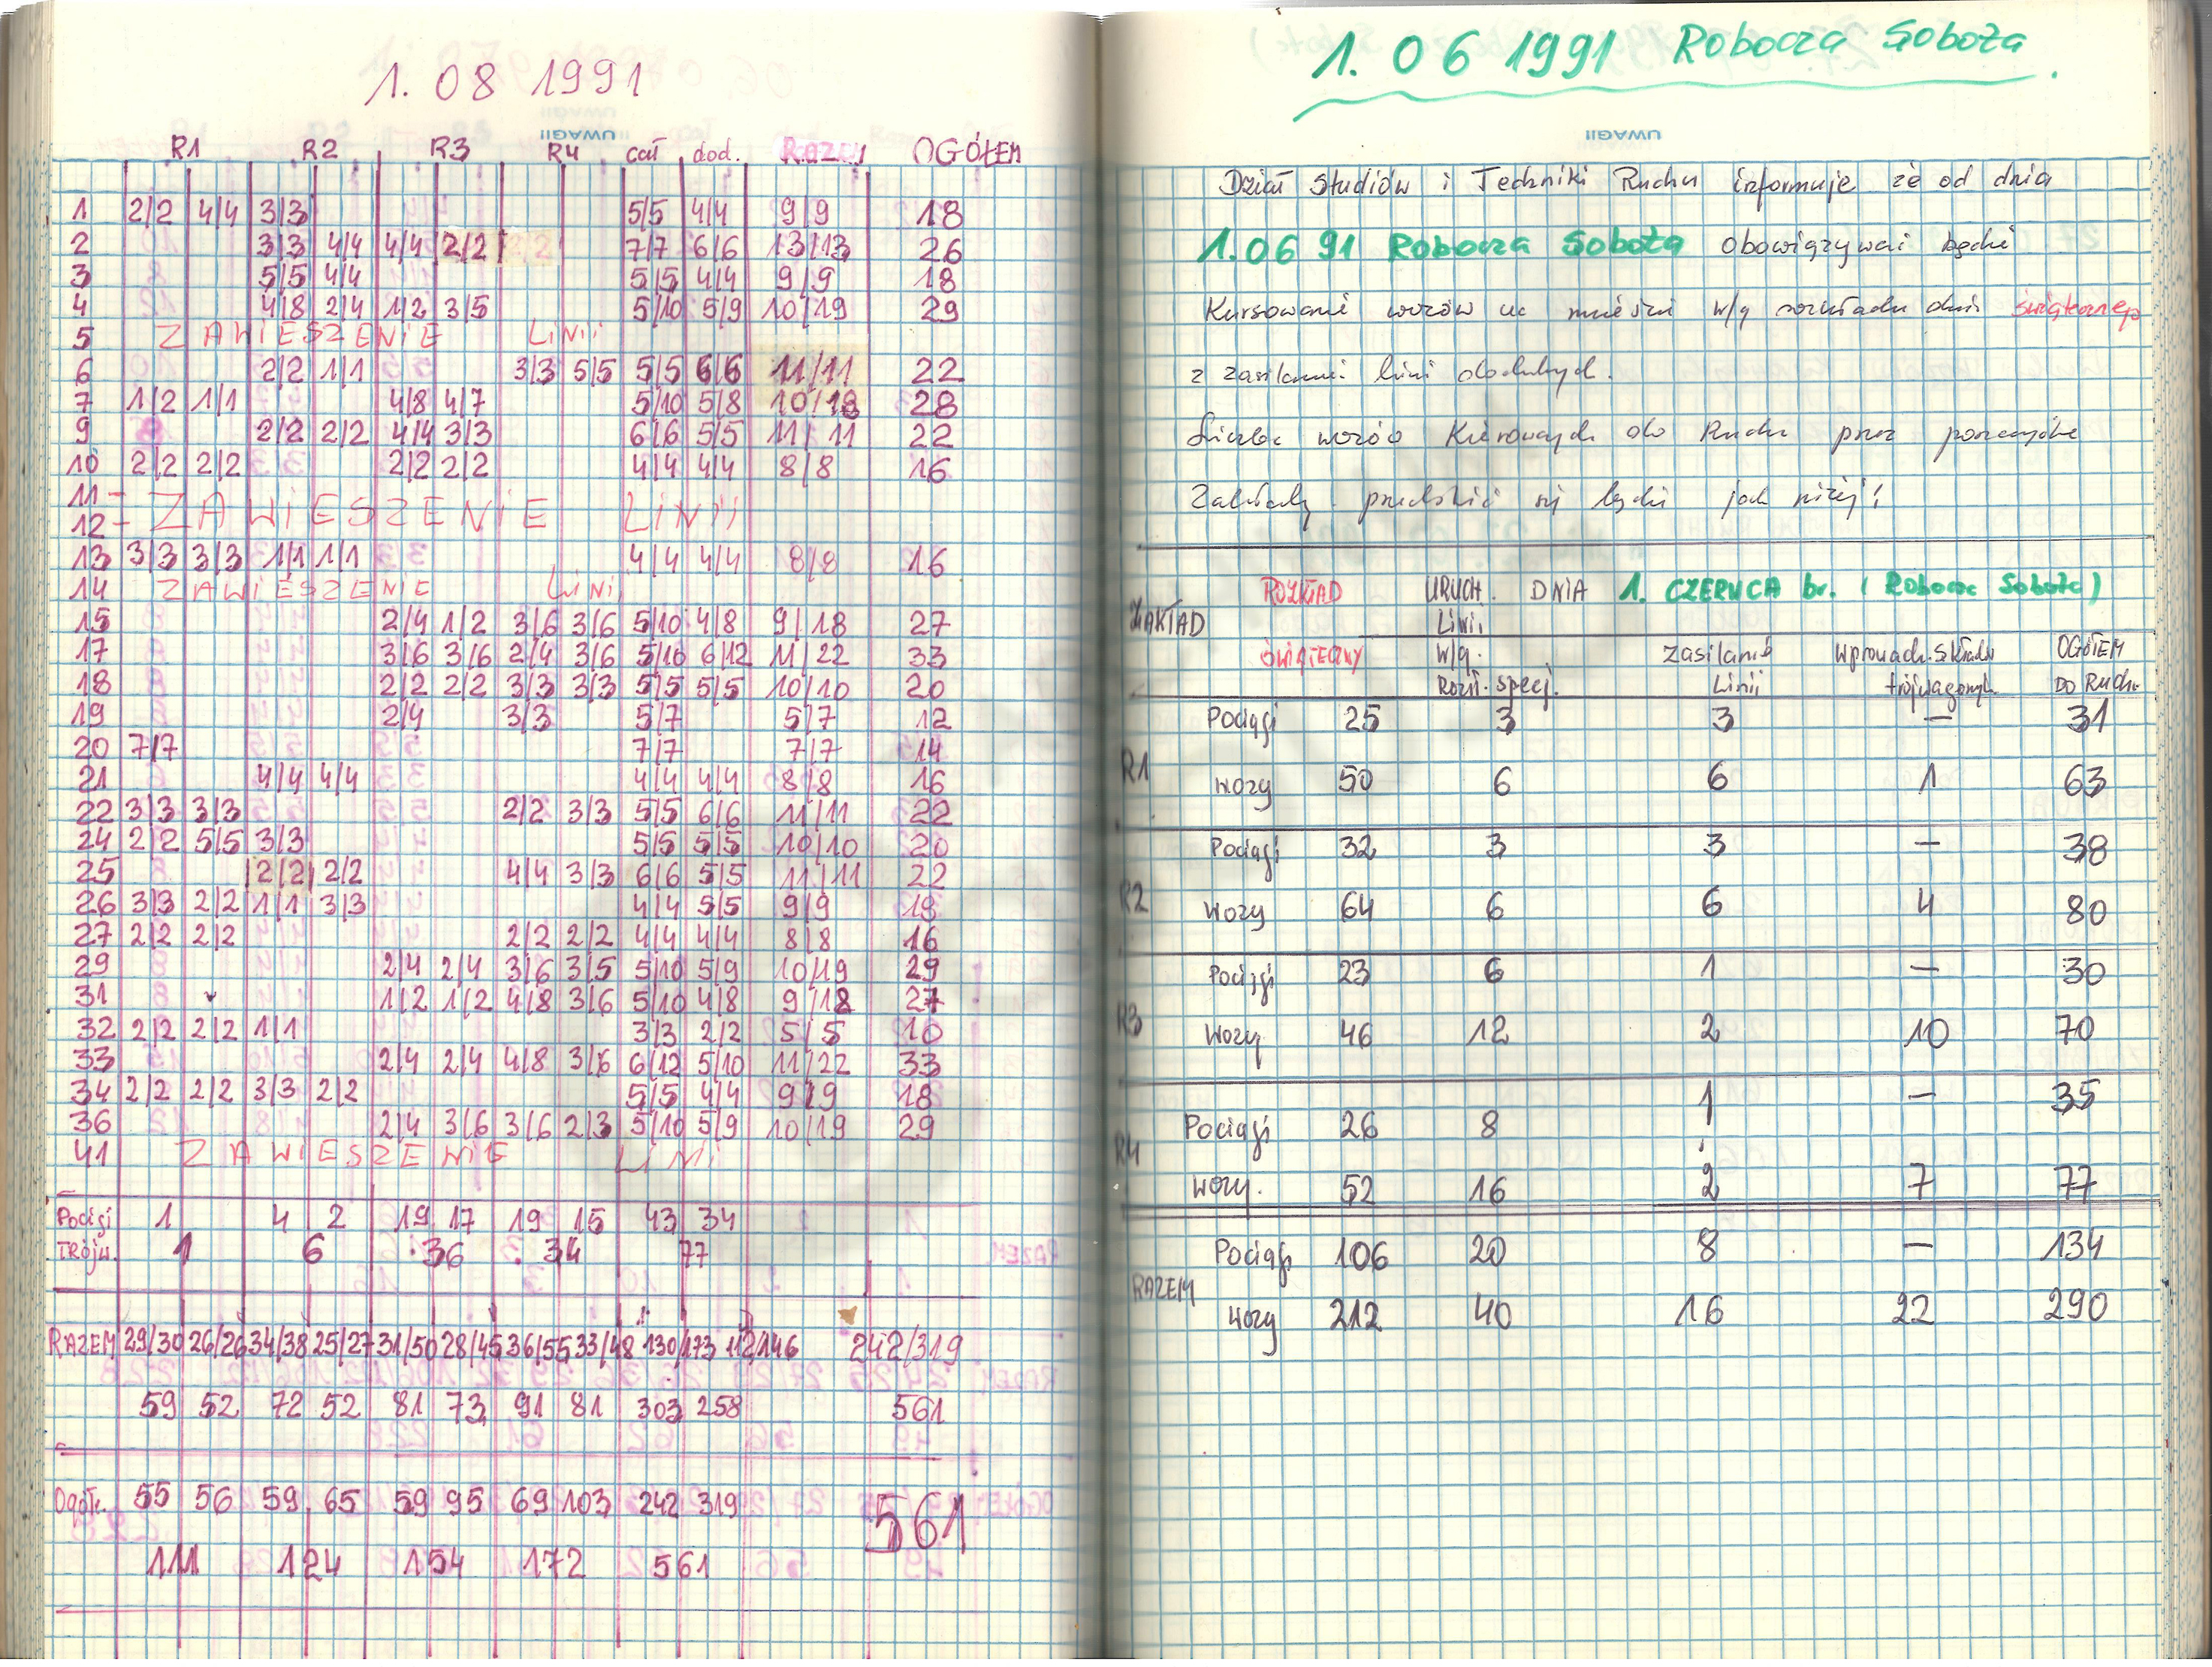 1. 08 1991
UWAGI
R1 R2 R3 R4 cał dod. RAZEM OGÓŁEM
1 2/2 4/4 3/3 5/5 4/4 9/9 18
2 3/3 4/4 4/4 2/2 7/7 6/6 13/13 26
3 5/5 4/4 5/5 4/4 9/9 18
4 4/8 2/4 1/2 3/5 5/10 5/9 10/19 29
5 ZAWIESZENIE LINII
6 2/2 1/1 3/3 5/5 5/5 6/6 11/11 22
7 1/2 1/1 4/8 4/7 5/10 5/8 10/18 28
9 2/2 2/2 4/4 3/3 6/6 5/5 11/11 22
10 2/2 2/2 2/2 2/2 4/4 4/4 8/8 16
11 - ZAWIESZENIE LINII
12 -
13 3/3 3/3 1/1 1/1 4/4 4/4 8/8 16
14 ZAWIESZENIE LINII
15 2/4 1/2 3/6 3/6 5/10 4/8 9/18 27
17 3/6 3/6 2/4 3/6 5/10 6/12 11/22 33
18 2/2 2/2 3/3 3/3 5/5 5/5 10/10 20
19 2/4 3/3 5/7 5/7 12
20 7/7 7/7 7/7 14
21 4/4 4/4 4/4 4/4 8/8 16
22 3/3 3/3 2/2 3/3 5/5 6/6 11/11 22
24 2/2 5/5 3/3 5/5 5/5 10/10 20
25 2/2 2/2 4/4 3/3 6/6 5/5 11/11 22
26 3/3 2/2 1/1 3/3 4/4 5/5 9/9 18
27 2/2 2/2 2/2 2/2 4/4 4/4 8/8 16
29 2/4 2/4 3/6 3/5 5/10 5/9 10/19 29
31 1/2 1/2 4/8 3/6 5/10 4/8 9/18 27
32 2/2 2/2 1/1 3/3 2/2 5/5 10
33 2/4 2/4 4/8 3/6 6/12 5/10 11/22 33
34 2/2 2/2 3/3 2/2 5/5 4/4 9/9 18
36 2/4 3/6 3/6 2/3 5/10 5/9 10/19 29
41 ZAWIESZENIE LINI
Pociągi 1 4 2 19 17 19 15 43 34
Trójw. 1 6 36 34 77
RAZEM 29/30 26/26 34/38 25/27 31/50 28/45 36/55 33/48 130/173 112/146 242/319
59 52 72 52 81 73 91 81 303 258 561
Ogółe. 55 56 59 65 59 95 69 103 242 319 561
111 124 154 172 561
1. 06 1991 Robocza Sobota.
UWAGI
Dział Studiów i Techniki Ruchu informuje że od dnia
1.06 91 Robocza Sobota obowiązywać będzie
Kursowanie wozów na mieście w/g rozkładu dnia świątecznego
z zasilaniem linii dodatnych.
Liczba wozów Kierowanych do Ruchu przez poszczególne
Zakłady przedstawić się będzie jak niżej!
ZAKŁAD ROZKŁAD URUCH. DNIA 1. CZERWCA br. (Robocza Sobota)
Linii
ŚWIĄTECZNY W/g. Zasilanie Wprowadz. Składów OGÓŁEM
Rozkł. specj. Linii trójwagonowych DO Ruchu
Pociągi 25 3 3 — 31
R1
Wozy 50 6 6 1 63
Pociągi 32 3 3 — 38
R2
Wozy 64 6 6 4 80
Pociągi 23 6 1 — 30
R3
Wozy 46 12 2 10 70
Pociągi 26 8 1 — 35
R4
Wozy. 52 16 2 7 77
Pociągi 106 20 8 — 134
RAZEM
Wozy 212 40 16 22 290